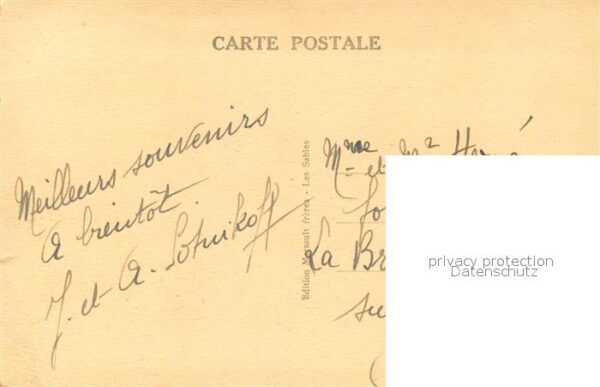 CARTE POSTALE
Meilleurs souvenirs
A bientôt.
J. et A. Solnikoff
Edition Moysault frères - Les Sables
Mme et Mr Hervé
La Br
su
privacy protection
Datenschutz